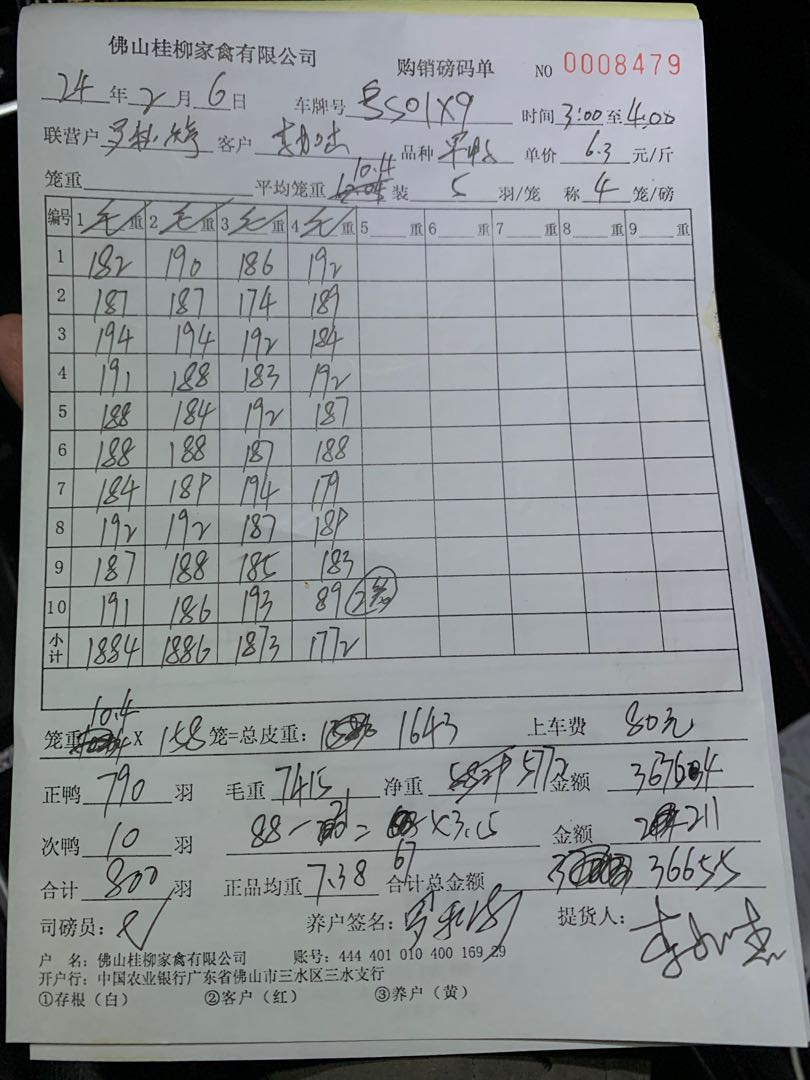 佛山桂柳家禽有限公司 购销磅码单 NO 0008479
24年2月6日 车牌号 粤S01X9 时间 3:00至4:00
联营户 客户 品种 单价 6.3 元/斤
笼重 平均笼重 10.4 装 5 羽/笼 称 4 笼/磅
编号 1 毛重 2 毛重 3 毛重 4 毛重 5 重 6 重 7 重 8 重 9 重
1 182 190 186 192
2 187 187 174 189
3 194 194 192 184
4 191 188 183 192
5 188 184 192 187
6 188 188 187 188
7 184 189 194 179
8 192 192 187 189
9 187 188 185 183
10 191 186 193 89
小计 1884 1886 1873 1772
笼重 10.4 X 158 笼=总皮重: 1643 上车费 80元
正鸭 790 羽 毛重 7415 净重 5772 金额
次鸭 10 羽 88 - = 67 X3.15 金额 211
合计 800 羽 正品均重 7.38 合计总金额 36655
司磅员: 养户签名: 提货人:
户 名: 佛山桂柳家禽有限公司 账号: 444 401 010 400 169 29
开户行: 中国农业银行广东省佛山市三水区三水支行
①存根(白) ②客户(红) ③养户(黄)